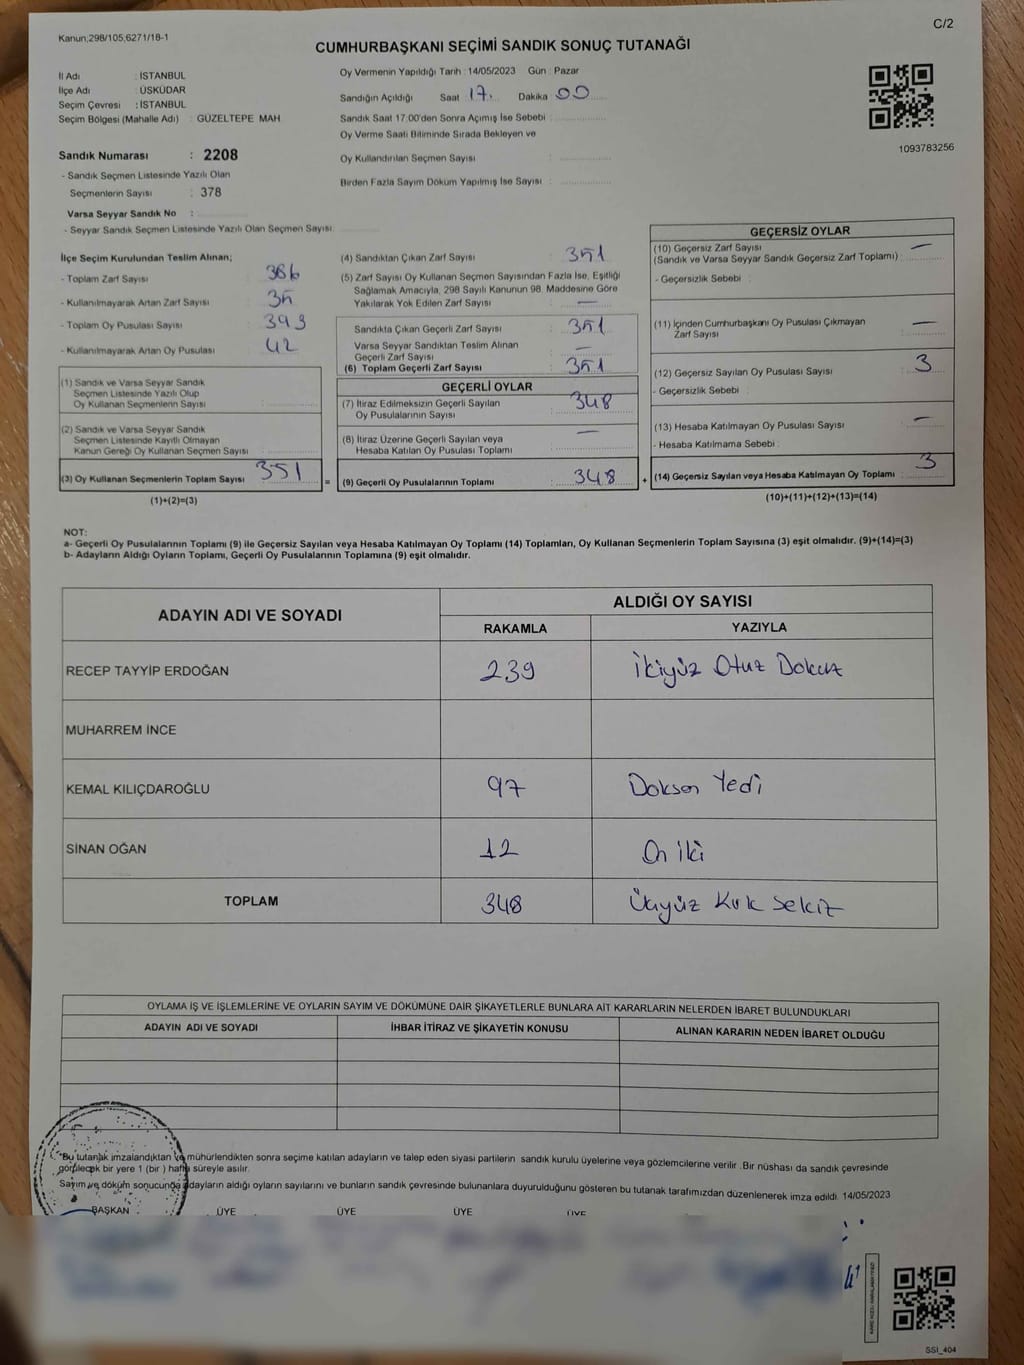 Kanun;298/105,6271/18-1
C/2
CUMHURBAŞKANI SEÇİMİ SANDIK SONUÇ TUTANAĞI
İl Adı : İSTANBUL
İlçe Adı : ÜSKÜDAR
Seçim Çevresi : İSTANBUL
Seçim Bölgesi (Mahalle Adı) : GÜZELTEPE MAH
Sandık Numarası : 2208
- Sandık Seçmen Listesinde Yazılı Olan
Seçmenlerin Sayısı : 378
Varsa Seyyar Sandık No :
- Seyyar Sandık Seçmen Listesinde Yazılı Olan Seçmen Sayısı
Oy Vermenin Yapıldığı Tarih : 14/05/2023 Gün : Pazar
Sandığın Açıldığı Saat 17. Dakika 00
Sandık Saat 17:00'den Sonra Açımış İse Sebebi :
Oy Verme Saati Bitiminde Sırada Bekleyen ve
Oy Kullandırılan Seçmen Sayısı :
Birden Fazla Sayım Döküm Yapılmış İse Sayısı :
1093783256
İlçe Seçim Kurulundan Teslim Alınan;
- Toplam Zarf Sayısı 386
- Kullanılmayarak Artan Zarf Sayısı 35
- Toplam Oy Pusulası Sayısı 393
- Kullanılmayarak Artan Oy Pusulası 42
(1) Sandık ve Varsa Seyyar Sandık
Seçmen Listesinde Yazılı Olup
Oy Kullanan Seçmenlerin Sayısı :
(2) Sandık ve Varsa Seyyar Sandık
Seçmen Listesinde Kayıtlı Olmayan
Kanun Gereği Oy Kullanan Seçmen Sayısı :
(3) Oy Kullanan Seçmenlerin Toplam Sayısı 351
(1)+(2)=(3)
=
(4) Sandıktan Çıkan Zarf Sayısı : 351
(5) Zarf Sayısı Oy Kullanan Seçmen Sayısından Fazla İse, Eşitliği
Sağlamak Amacıyla, 298 Sayılı Kanunun 98. Maddesine Göre
Yakılarak Yok Edilen Zarf Sayısı : —
Sandıkta Çıkan Geçerli Zarf Sayısı : 351
Varsa Seyyar Sandıktan Teslim Alınan
Geçerli Zarf Sayısı : —
(6) Toplam Geçerli Zarf Sayısı : 351
GEÇERLİ OYLAR
(7) İtiraz Edilmeksizin Geçerli Sayılan
Oy Pusulalarının Sayısı : 348
(8) İtiraz Üzerine Geçerli Sayılan veya
Hesaba Katılan Oy Pusulası Toplamı : —
(9) Geçerli Oy Pusulalarının Toplamı : 348
+
GEÇERSİZ OYLAR
(10) Geçersiz Zarf Sayısı
(Sandık ve Varsa Seyyar Sandık Geçersiz Zarf Toplamı) : —
- Geçersizlik Sebebi :
(11) İçinden Cumhurbaşkanı Oy Pusulası Çıkmayan
Zarf Sayısı : —
(12) Geçersiz Sayılan Oy Pusulası Sayısı : 3
- Geçersizlik Sebebi :
(13) Hesaba Katılmayan Oy Pusulası Sayısı : —
- Hesaba Katılmama Sebebi :
(14) Geçersiz Sayılan veya Hesaba Katılmayan Oy Toplamı : 3
(10)+(11)+(12)+(13)=(14)
NOT:
a- Geçerli Oy Pusulalarının Toplamı (9) ile Geçersiz Sayılan veya Hesaba Katılmayan Oy Toplamı (14) Toplamları, Oy Kullanan Seçmenlerin Toplam Sayısına (3) eşit olmalıdır. (9)+(14)=(3)
b- Adayların Aldığı Oyların Toplamı, Geçerli Oy Pusulalarının Toplamına (9) eşit olmalıdır.
ADAYIN ADI VE SOYADI
ALDIĞI OY SAYISI
RAKAMLA YAZIYLA
RECEP TAYYİP ERDOĞAN 239 İkiyüz Otuz Dokuz
MUHARREM İNCE
KEMAL KILIÇDAROĞLU 97 Doksan Yedi
SİNAN OĞAN 12 On iki
TOPLAM 348 Üçyüz Kırk Sekiz
OYLAMA İŞ VE İŞLEMLERİNE VE OYLARIN SAYIM VE DÖKÜMÜNE DAİR ŞİKAYETLERLE BUNLARA AİT KARARLARIN NELERDEN İBARET BULUNDUKLARI
ADAYIN ADI VE SOYADI İHBAR İTİRAZ VE ŞİKAYETİN KONUSU ALINAN KARARIN NEDEN İBARET OLDUĞU
"Bu tutanak imzalandıktan ve mühürlendikten sonra seçime katılan adayların ve talep eden siyasi partilerin sandık kurulu üyelerine veya gözlemcilerine verilir .Bir nüshası da sandık çevresinde
görülecek bir yere 1 (bir ) hafta süreyle asılır.
Sayım ve döküm sonucunda adayların aldığı oyların sayılarını ve bunların sandık çevresinde bulunanlara duyurulduğunu gösteren bu tutanak tarafımızdan düzenlenerek imza edildi. 14/05/2023
BAŞKAN ÜYE ÜYE ÜYE ÜYE
SSI_404